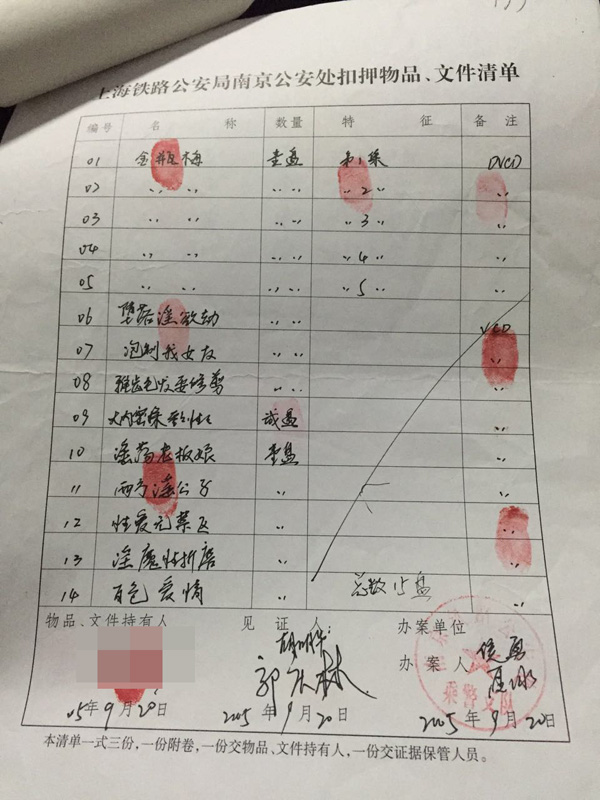 上海铁路公安局南京公安处扣押物品、文件清单
编号 名 称 数量 特 征 备 注
01 金瓶梅 壹盘 第1集 DVCD
02 〃 〃 〃 〃 〃 2 〃 〃
03 〃 〃 〃 〃 〃 3 〃 〃
04 〃 〃 〃 〃 〃 4 〃 〃
05 〃 〃 〃 〃 〃 5 〃 〃
06 堕落淫欲劫 〃 〃 VCD
07 泡制我女友 〃 〃 〃
08 〃 〃 〃
09 贰盘 〃
10 淫荡老板娘 壹盘 〃
11 〃 〃
12 性爱无禁区 〃 〃
13 淫魔性折磨 〃 〃
14 百色爱情 〃 总数15盘 〃
物品、文件持有人 见 证 人: 办案单位
办 案 人:
郭庆林
05年9月20日 2005年9月20日 2005年9月20日
乘警支队
本清单一式三份,一份附卷,一份交物品、文件持有人,一份交证据保管人员。